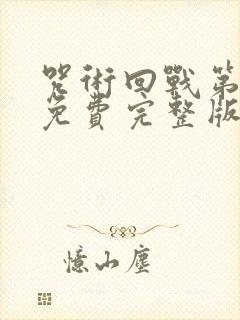 咒術回戰第
免費完整版
憶山塵